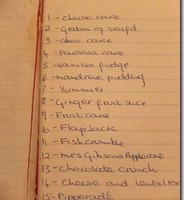 1 - cheese cake
2 - Gratan of seafd
3 - choc cake
4 - Pavlova cake
5 - vanilla fudge
6 - mandrine pudding
7 - Yummies
8 - Ginger fruit slice
9 - Fruit cake
10 - Flap Jacks
11 - Fish crumble
12 - mrs Gibsons Apple cake
13 - Chocolate crunch
14 - Cheese and lentil
15 - Pipperade